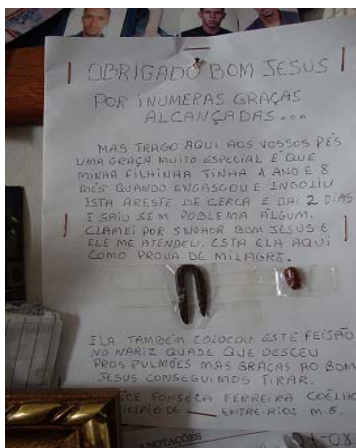 OBRIGADO BOM JESUS
POR INUMERAS GRAÇAS
ALCANÇADAS...
MAS TRAGO AQUI AOS VOSSOS PÉS
UMA GRAÇA MUITO ESPECIAL É QUE
MINHA FILHINHA TINHA 1 ANO E 8
MÊS QUANDO ENGASGOU E INGOLIU
ISTA ARESTE DE CERCA E DAI 2 DIAS
I SAIU SEM POBLEMA ALGUM.
CLAMEI POR SENHOR BOM JESUS E
ELE ME ATENDEU. ESTA ELA AQUI
COMO PROVA DE MILAGRE.
ELA TAMBÉM COLOCOU ESTE FEIJÃO
NO NARIZ QUASE QUE DESCEU
PROS PULMÕES MAS GRAÇAS AO BOM
JESUS CONSEGUIMOS TIRAR.
FONSECA FERREIRA COELHO
DE ENTRE-RIOS M.G.
ANOTAÇÕES